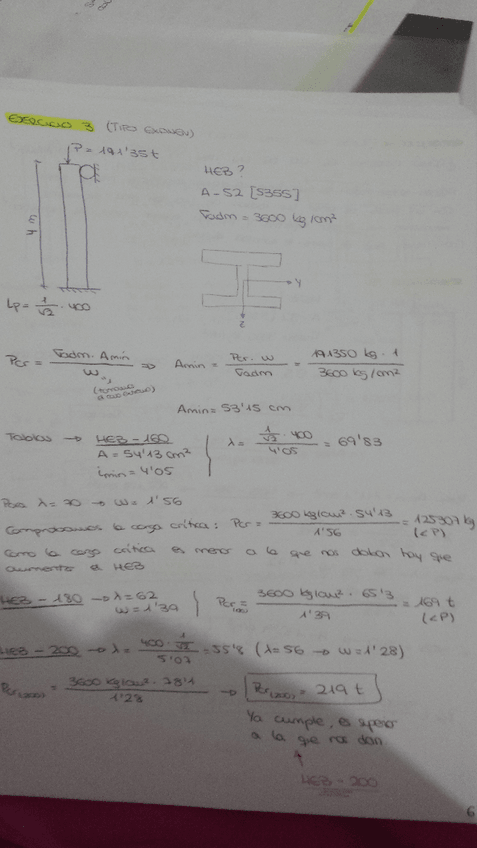 EJERCICIO 3 (TIPO EXAMEN)
P = 191'35 t
HEB?
A-52 [S355]
σadm = 3600 kg/cm²
4 m
y
z
Lp = 1/√2 · 400
Pcr = σadm · Amin / ω ⇒ Amin = Pcr · ω / σadm = 191350 kg · 1 / 3600 kg/cm²
Amin = 53'15 cm
Tablas → HEB-160
A = 54'13 cm²
imin = 4'05
λ = 1/√2 · 400 / 4'05 = 69'83
Para λ = 70 → ω = 1'56
Comprobamos la carga crítica: Pcr = 3600 kg/cm² · 54'13 / 1'56 = 125307 kg
(< P)
Como la carga crítica es menor a la que nos daban hay que
aumentar el HEB
HEB-180 → λ = 62
ω = 1'39
Pcr = 3600 kg/cm² · 65'3 / 1'39 = 169 t
(< P)
HEB-200 → λ = 400 · 1/√2 / 5'07 = 55'8 (λ = 56 → ω = 1'28)
Pcr(200) = 3600 kg/cm² · 78'1 / 1'28 → Pcr(200) = 219 t
Ya cumple, es superior
a la que nos dan
HEB-200
6